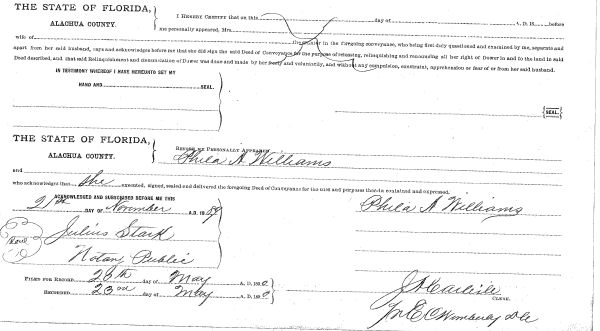 THE STATE OF FLORIDA,
ALACHUA COUNTY.
I HEREBY CERTIFY that on this day of A. D. 18 before
me personally appeared, Mrs.
wife of the grantor in the foregoing conveyance, who being first duly questioned and examined by me, separate and
apart from her said husband, says and acknowledges before me that she did sign the said Deed of Conveyance for the purpose of releasing, relinquishing and renouncing all her right of Dower in and to the land in said
Deed described, and that said Relinquishment and renunciation of Dower was done and made by her freely and voluntarily, and without any compulsion, constraint, apprehension or fear of or from her said husband.
IN TESTIMONY WHEREOF I HAVE HEREUNTO SET MY
HAND AND SEAL.
SEAL.
THE STATE OF FLORIDA,
ALACHUA COUNTY.
BEFORE ME PERSONALLY APPEARED
Phila A Williams
and
who acknowledges that she executed, signed, sealed and delivered the foregoing Deed of Conveyance for the uses and purposes therein contained and expressed.
ACKNOWLEDGED AND SUBSCRIBED BEFORE ME THIS
21st DAY OF November A. D. 18 Phila A Williams
Julius Stark
Seal
Notary Public
FILED FOR RECORD day of May A. D. 18
RECORDED day of May A. D. 18
J A Carlisle
CLERK.
Wimberly D C